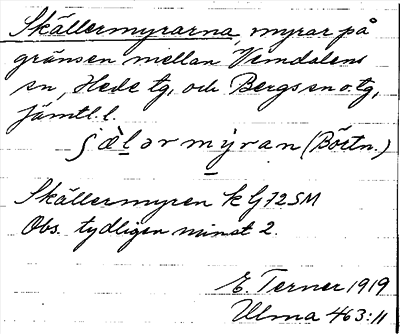 Skällermyrarna, myrar på
gränsen mellan Vemdalens
sn, Hede tg, och Bergs sn o. tg,
Jämtl. l.
ʃälərmyran (Börtn.)
Skällermyren k G72SM
Obs. tydligen minst 2.
E. Terner 1919
Ulma 463:11